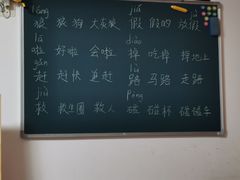 láng jiǎ
狼 狼狗 大灰狼 假 假的 放假
lā diào
啦 好啦 会啦 掉 吃掉 掉地上
gǎn lù
赶 赶快 追赶 路 马路 走路
jiù pèng
救 救生圈 救人 碰 碰杯 碰碰车